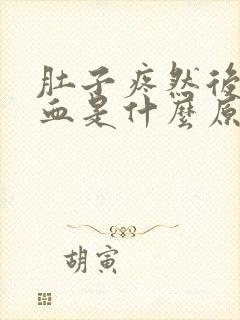 肚子疼然後
血是什麼原
胡寅